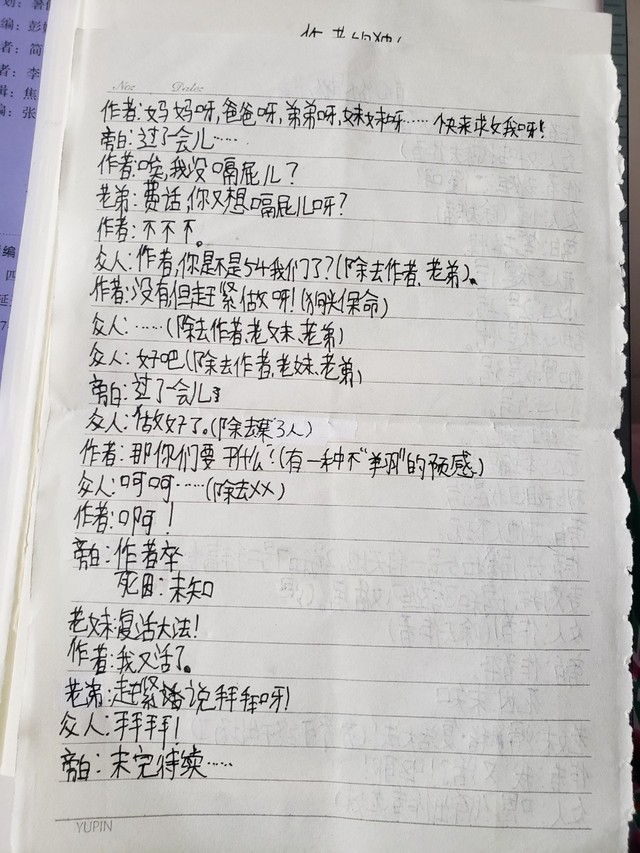 划：暑
编：彭
者：简
者：李
辑：焦
编：张
编
四
延
No:
Date:
作者:妈妈呀,爸爸呀,弟弟呀,妹妹呀……快来救救我呀!
旁白:过了会儿……
作者:唉,我没嗝屁儿?
老弟:费话,你又想嗝屁儿呀?
作者:不不不。
众人:作者,你是不是54我们了?(除去作者、老弟)。
作者:没有但赶紧做呀!(狗保命)
众人:……(除去作者、老妹、老弟)
众人:好吧(除去作者、老妹、老弟)
旁白:过了一会儿
众人:做好了。(除去某3人)
作者:那你们要干什么?(有一种不"羊羽"的预感)
众人:呵呵……(除去XX)
作者:啊!
旁白:作者卒
死因:未知
老妹:复活大法!
作者:我又活了。
老弟:赶紧说拜拜呀!
众人:拜拜!
旁白:未完待续……
YUPIN